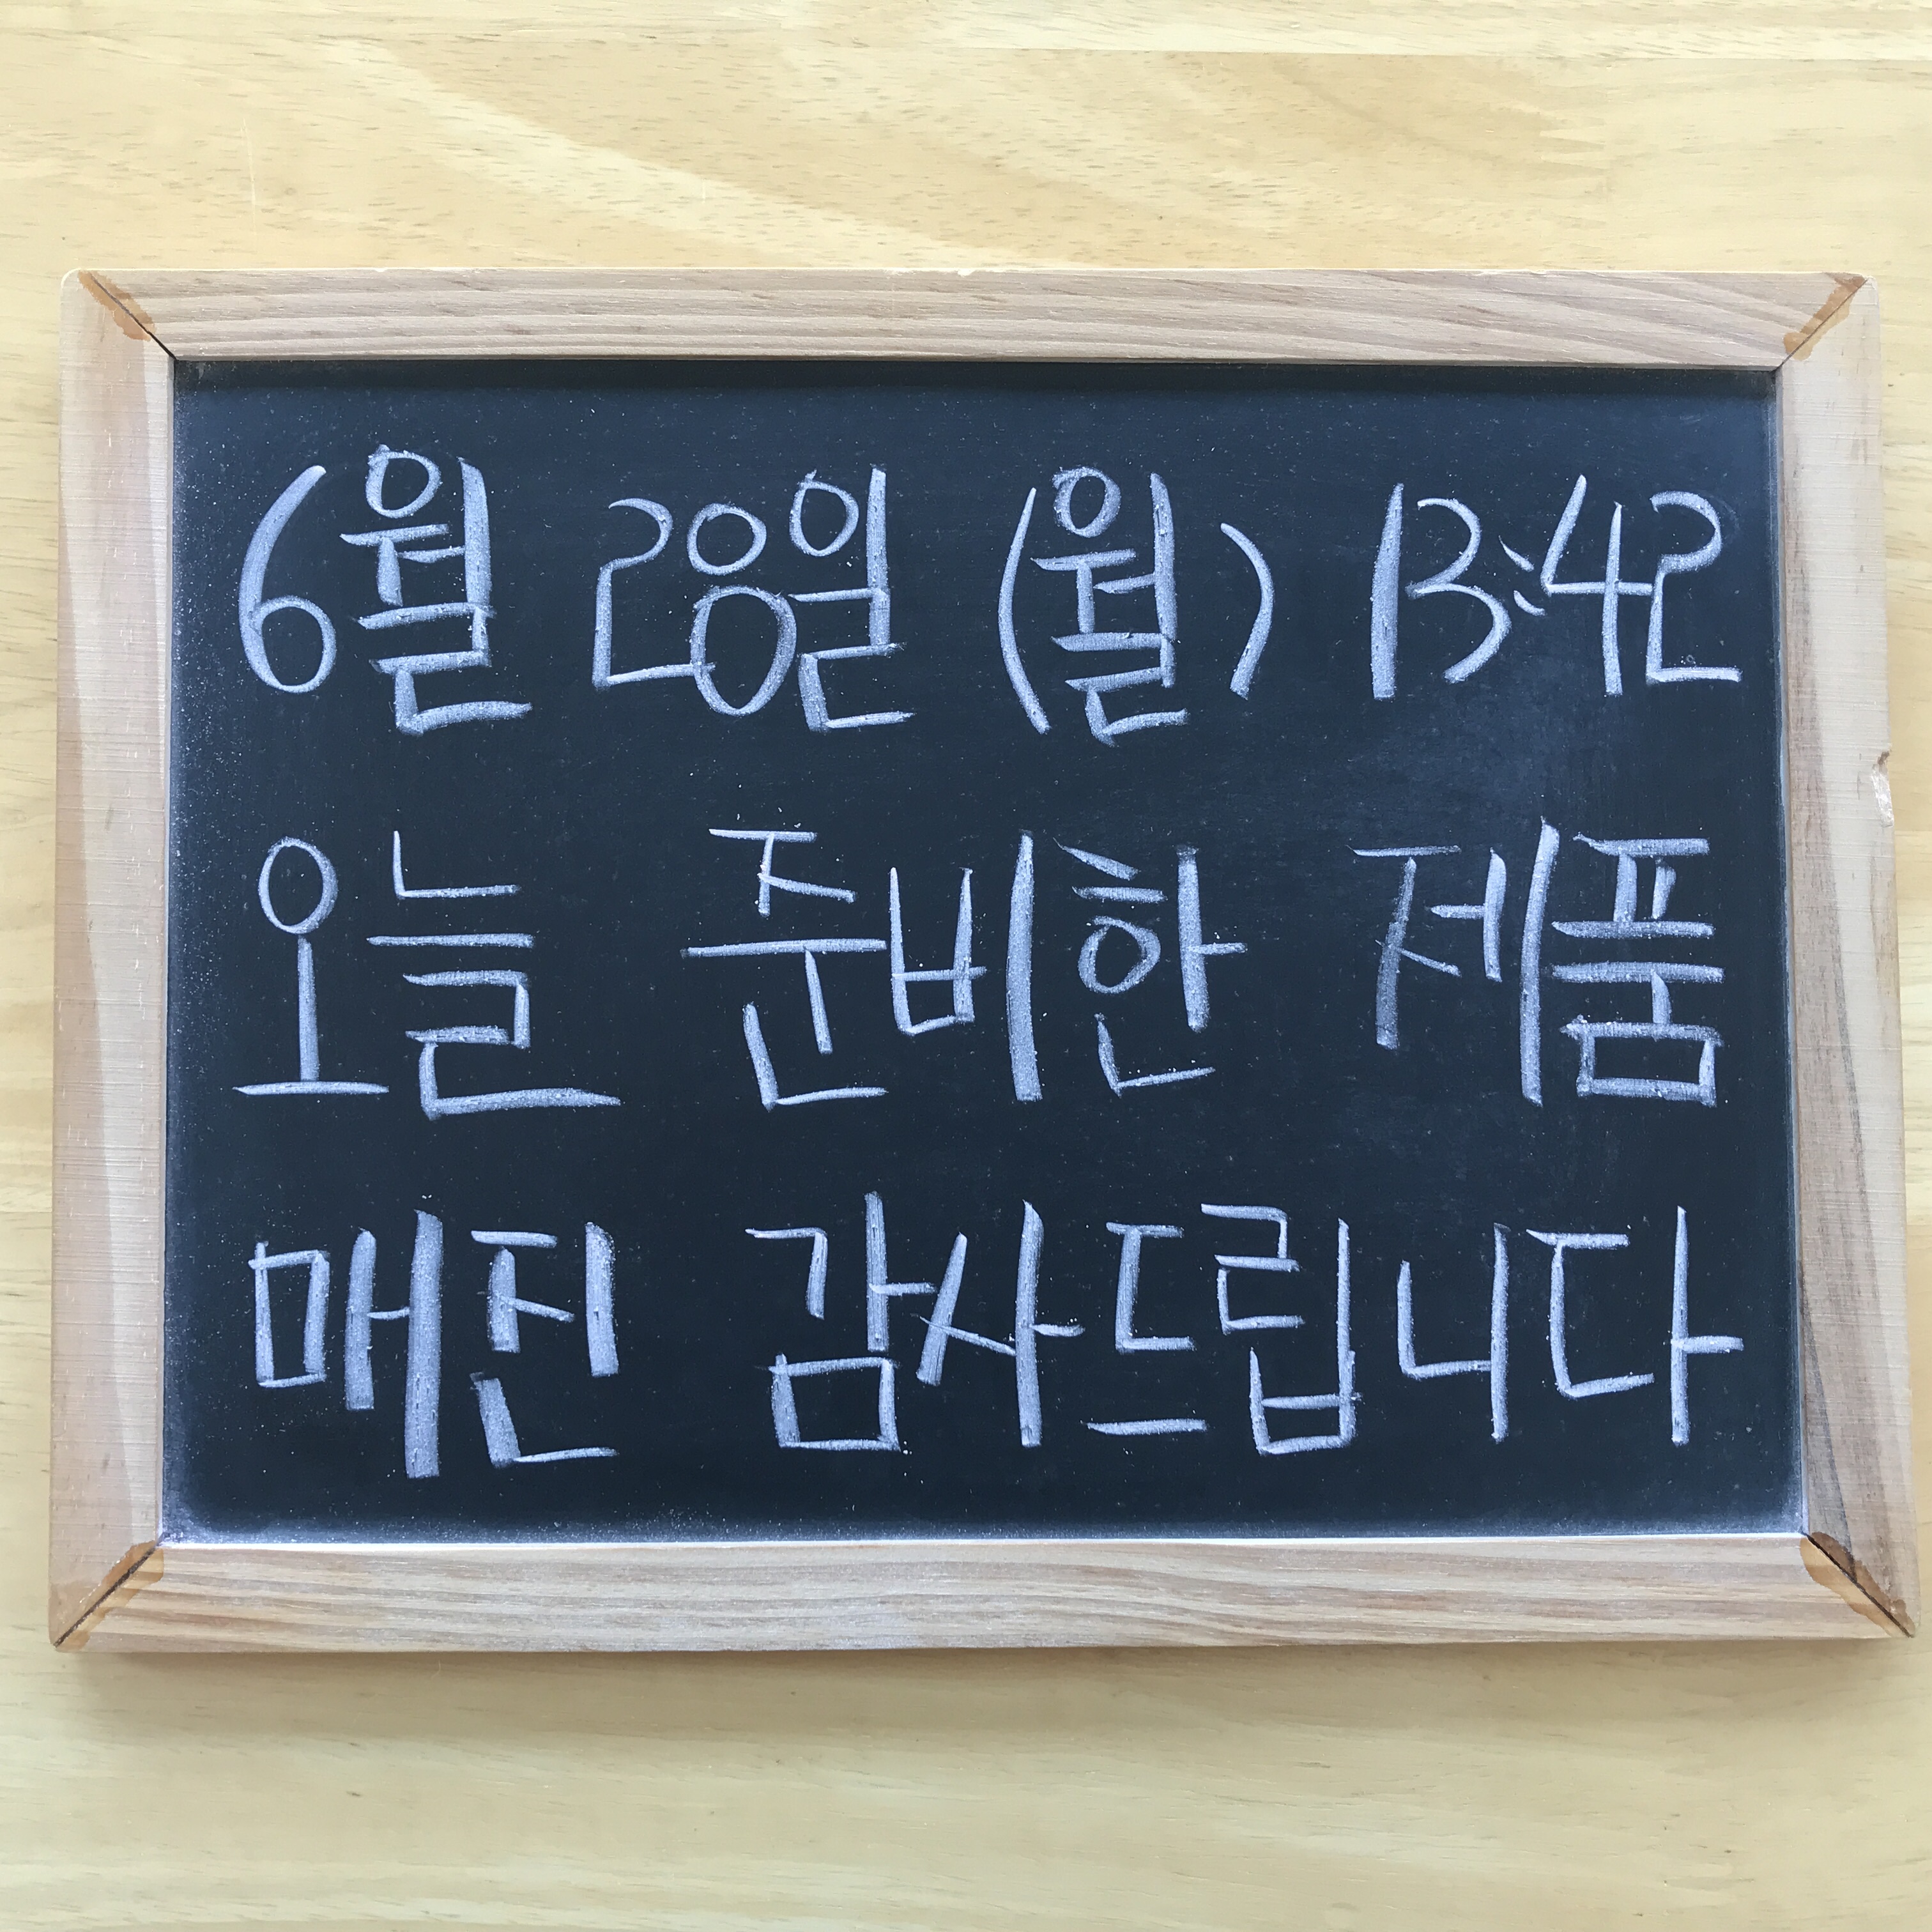 6월 28일 (월) 13:42
오늘 준비한 제품
매진 감사드립니다